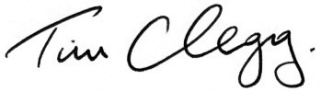 Tim Clegg.